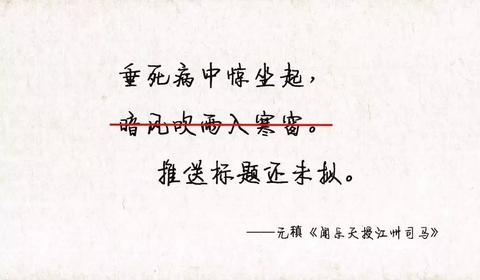 垂死病中惊坐起，
暗风吹雨入寒窗。
推送标题还未拟。
——元稹《闻乐天授江州司马》